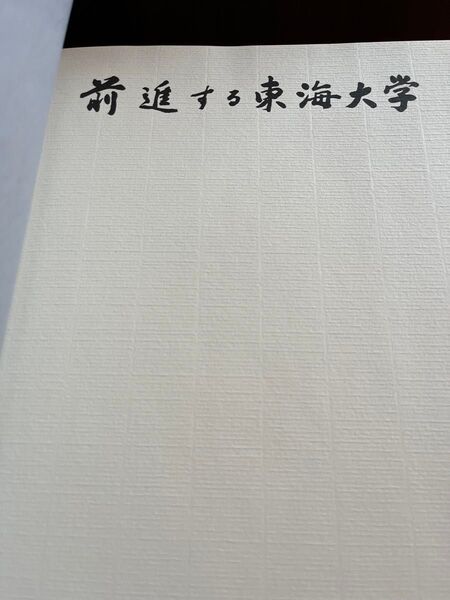 前進する東海大学